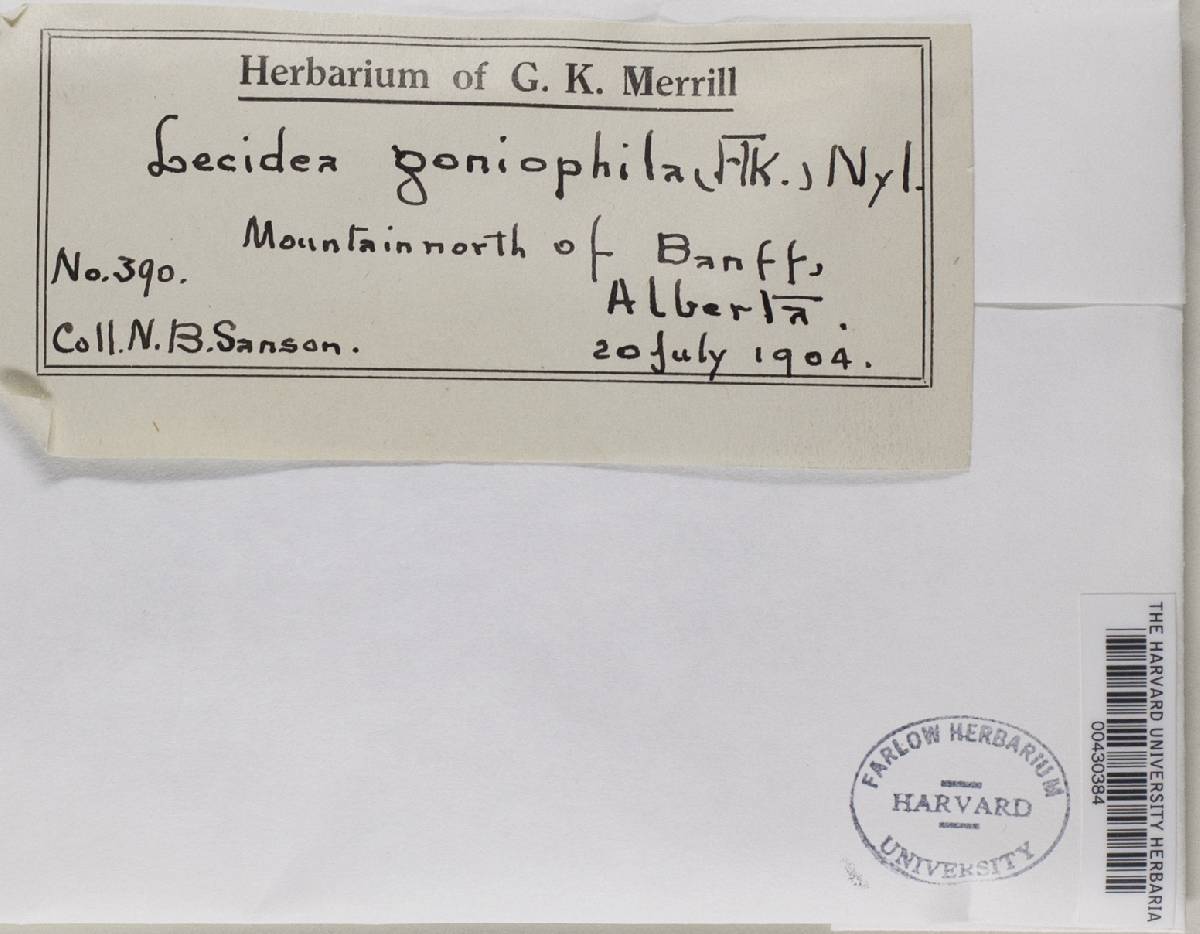 Herbarium of G. K. Merrill
Lecidea goniophila (Flk.) Nyl.
Mountain north of Banff,
No. 390.
Alberta.
Coll. N. B. Sanson.
20 July 1904.
THE HARVARD UNIVERSITY HERBARIA
00430384
FARLOW HERBARIUM
HARVARD
UNIVERSITY